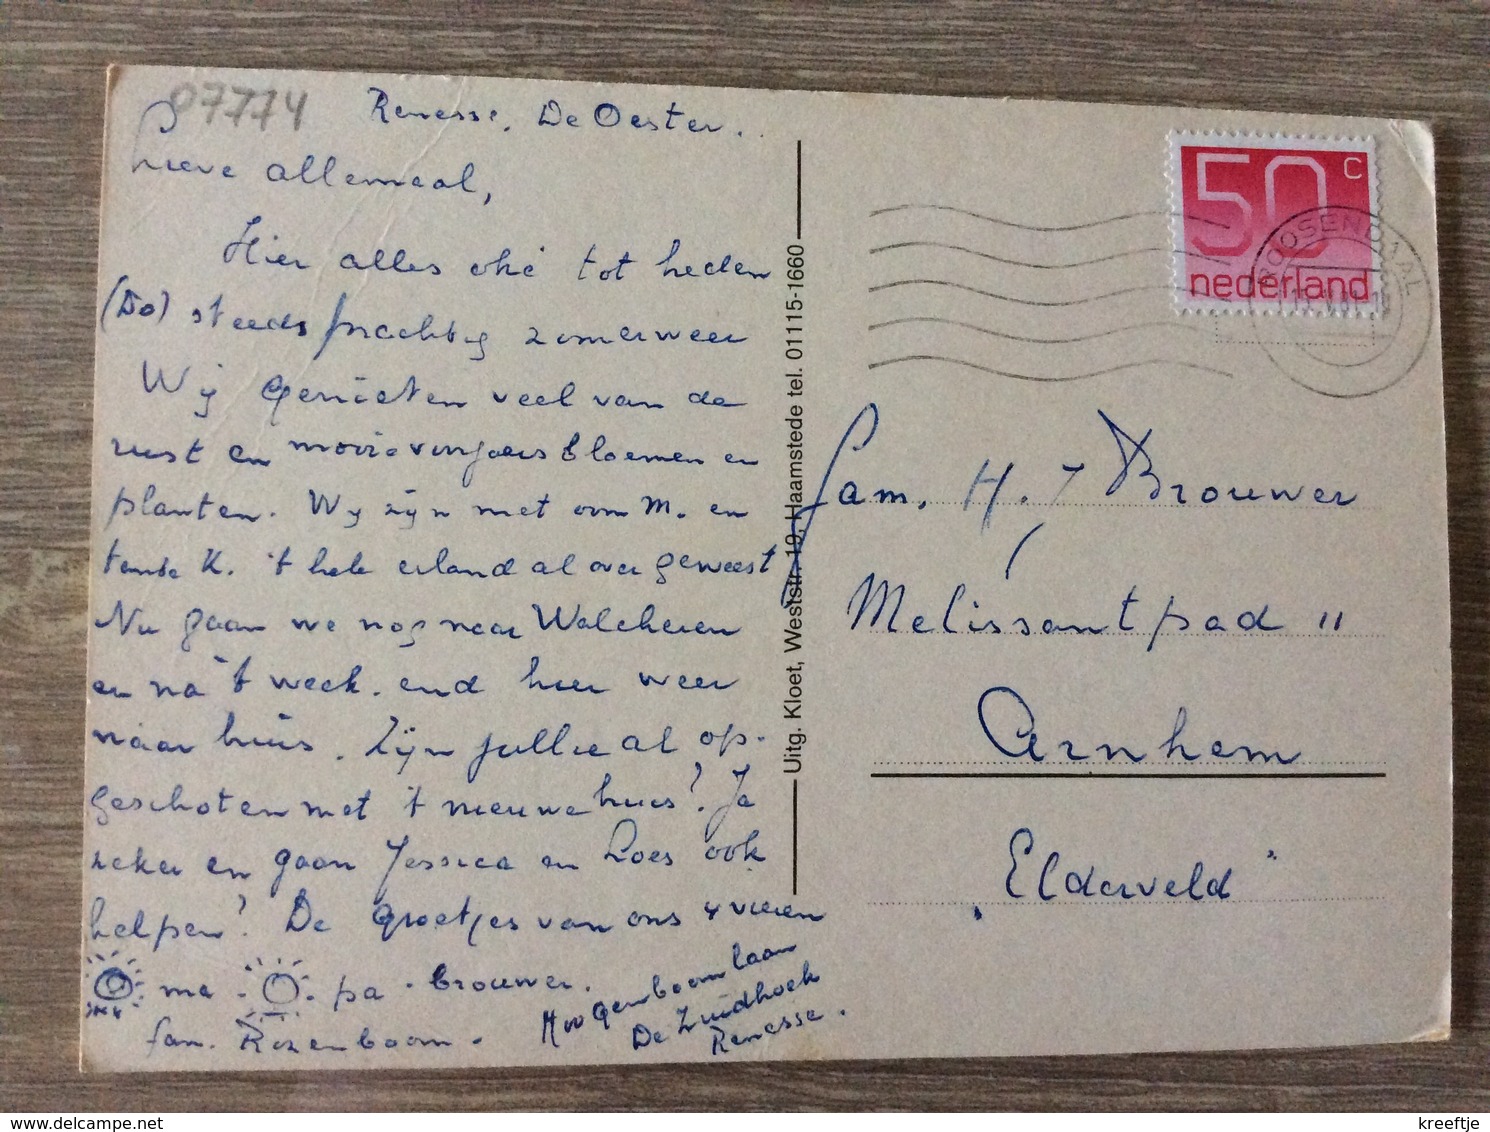 07774
Renesse, De Oester.
Lieve allemaal,
Hier alles oké tot heden
(Do) steeds prachtig zomerweer
Wij genieten veel van de
rust en mooie voorjaars bloemen en
planten. Wij zijn met oom M. en
tante K. 't hele eiland al over geweest
Nu gaan we nog naar Walcheren
en na 't week.end hier weer
naar huis. Zijn jullie al op-
geschoten met 't nieuwe huis? Ja
zeker en gaan Jessica en Loes ook
helpen? De Groetjes van ons 4 vieren
ma. pa. brouwer.
fam. Rozenboom.
Hoogenboomlaan
De Zuidhoek
Renesse.
Uitg. Kloet, Weststr. 19, Haamstede tel. 01115-1660
50 c
nederland
ROOSENDAAL
fam. H. J Brouwer
Melissantpad 11
Arnhem
„Elderveld"
kreeftje
www.delcampe.net